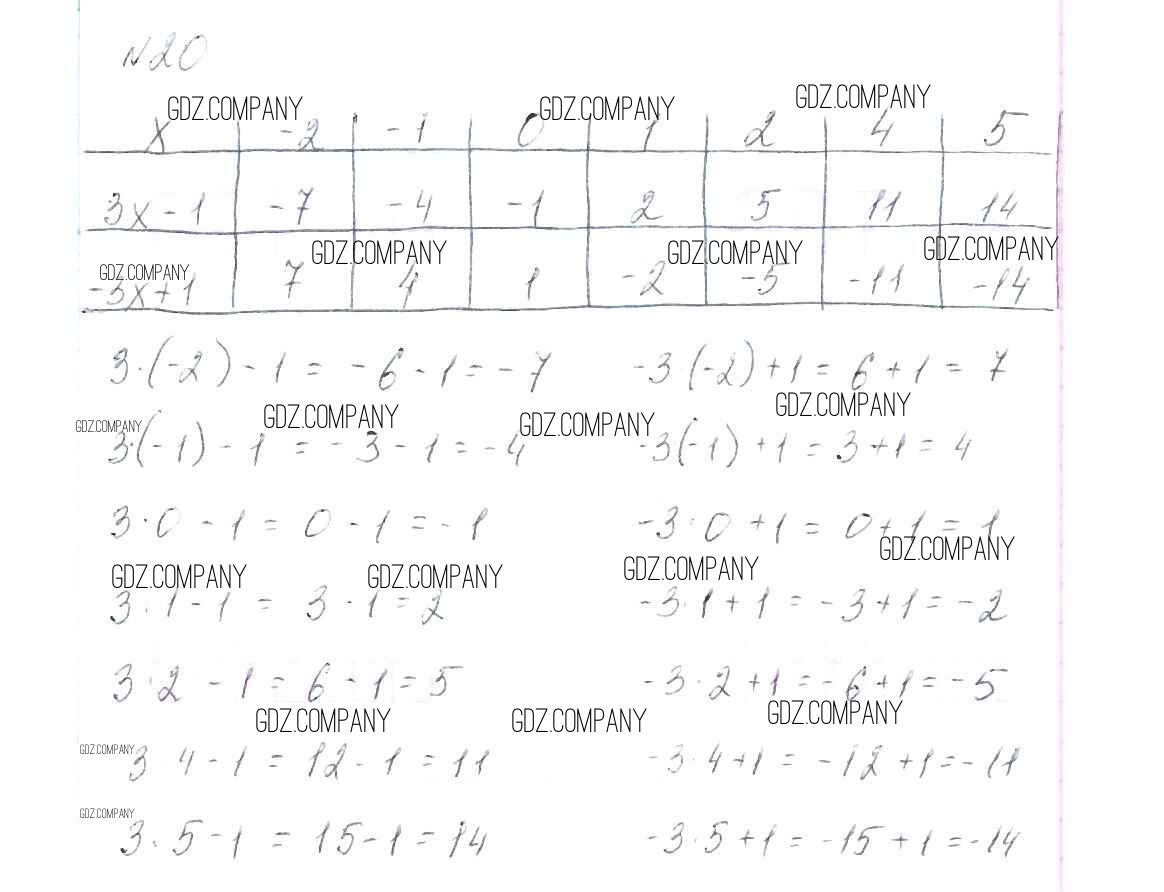 N20
GDZ.COMPANY GDZ.COMPANY GDZ.COMPANY
x -2 -1 0 1 2 4 5
3x-1 -7 -4 -1 2 5 11 14
GDZ.COMPANY GDZ.COMPANY GDZ.COMPANY GDZ.COMPANY
-3x+1 7 4 1 -2 -5 -11 -14
3·(-2)-1 = -6-1 = -7 -3·(-2)+1 = 6+1 = 7
GDZ.COMPANY GDZ.COMPANY GDZ.COMPANY GDZ.COMPANY
3·(-1)-1 = -3-1 = -4 -3(-1)+1 = 3+1 = 4
3·0-1 = 0-1 = -1 -3·0+1 = 0+1 = 1
GDZ.COMPANY GDZ.COMPANY GDZ.COMPANY GDZ.COMPANY
3·1-1 = 3-1 = 2 -3·1+1 = -3+1 = -2
3·2-1 = 6-1 = 5 -3·2+1 = -6+1 = -5
GDZ.COMPANY GDZ.COMPANY GDZ.COMPANY
GDZ.COMPANY
3 4-1 = 12-1 = 11 -3·4+1 = -12+1 = -11
GDZ.COMPANY
3·5-1 = 15-1 = 14 -3·5+1 = -15+1 = -14